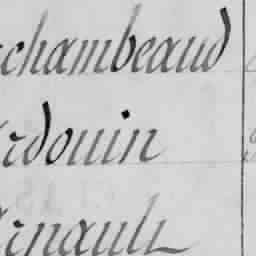 chambeaud
rdouin
rnault